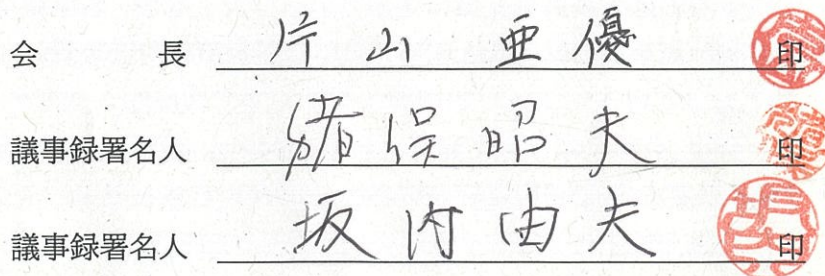 会長 片山亜優 印
議事録署名人 猪俣昭夫 印
議事録署名人 坂内由夫 印